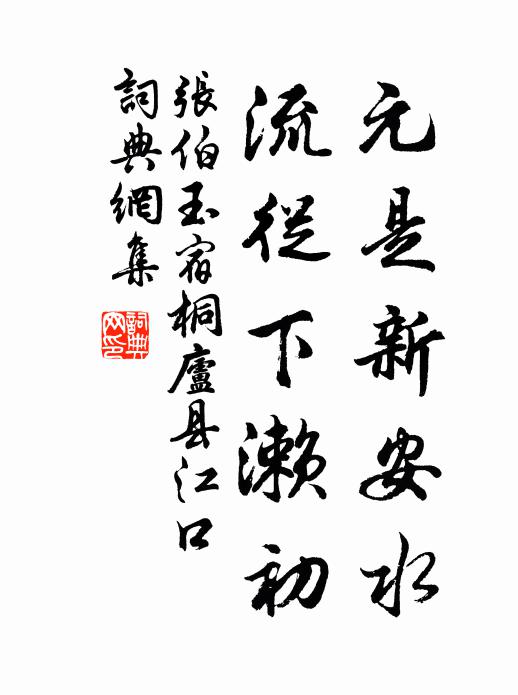 元是新安水
流從下瀨初
張伯玉宿桐廬县江口
詞典網集
詞典網印